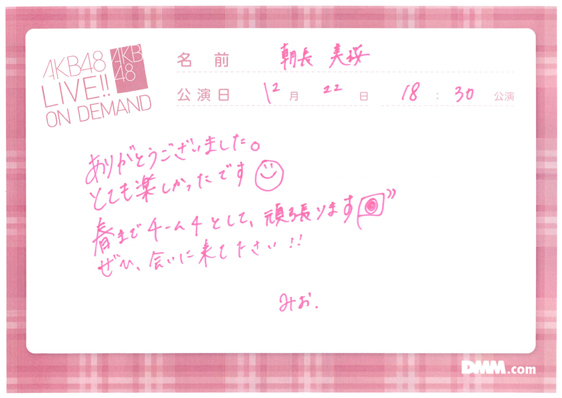 AKB48
LIVE!!
ON DEMAND
AKB
48
名前 朝長 美桜
公演日 12月 22日 18:30 公演
ありがとうございました。
とても楽しかったです
春までチーム4として、頑張ります
ぜひ、会いに来て下さい!!
みお.
DMM.com